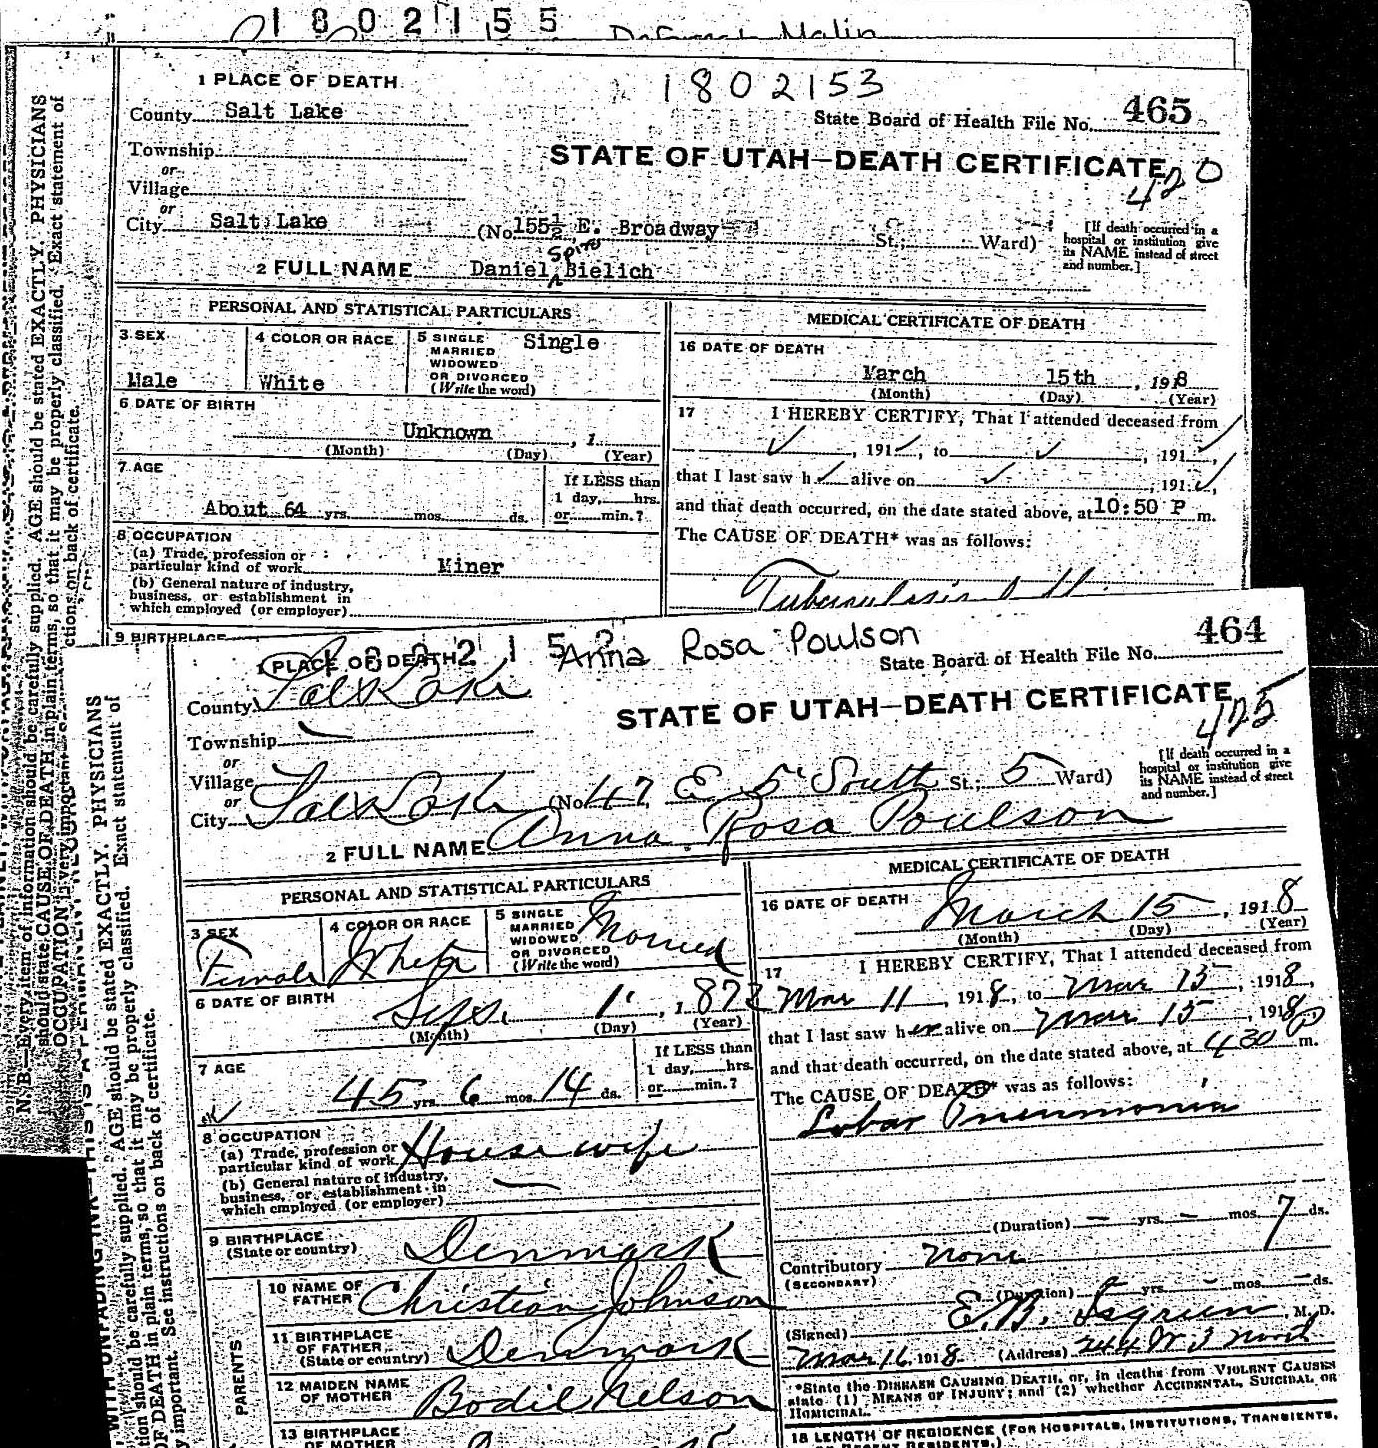 1802155
1 PLACE OF DEATH
1802153
County Salt Lake
State Board of Health File No. 465
Township
or
STATE OF UTAH—DEATH CERTIFICATE
420
Village
or
City Salt Lake (No. 155½ E. Broadway St.; Ward)
[If death occurred in a hospital or institution give its NAME instead of street and number.]
2 FULL NAME Daniel Spiro Bielich
PERSONAL AND STATISTICAL PARTICULARS
3 SEX Male
4 COLOR OR RACE White
5 SINGLE MARRIED WIDOWED OR DIVORCED (Write the word) Single
6 DATE OF BIRTH
Unknown , 1
(Month) (Day) (Year)
7 AGE
About 64 yrs. mos. ds.
If LESS than 1 day, hrs. or min.?
8 OCCUPATION
(a) Trade, profession or particular kind of work Miner
(b) General nature of industry, business, or establishment in which employed (or employer)
9 BIRTHPLACE
MEDICAL CERTIFICATE OF DEATH
16 DATE OF DEATH
March 15th , 1918
(Month) (Day) (Year)
17 I HEREBY CERTIFY, That I attended deceased from
✓ , 191✓, to ✓ , 191✓,
that I last saw h✓ alive on ✓ , 191✓,
and that death occurred, on the date stated above, at 10:50 P m.
The CAUSE OF DEATH* was as follows:
Tuberculosis
N. B.—Every item of information should be carefully supplied. AGE should be stated EXACTLY. PHYSICIANS
should state CAUSE OF DEATH in plain terms, so that it may be properly classified. Exact statement of
OCCUPATION is very important.
ctions on back of certificate.
1 PLACE OF DEATH
Anna Rosa Poulson
464
County Salt Lake
State Board of Health File No.
Township
or
STATE OF UTAH—DEATH CERTIFICATE
425
Village
or
City Salt Lake (No. 47 E 5 South St.; 5 Ward)
[If death occurred in a hospital or institution give its NAME instead of street and number.]
2 FULL NAME Anna Rosa Poulson
PERSONAL AND STATISTICAL PARTICULARS
3 SEX Female
4 COLOR OR RACE White
5 SINGLE MARRIED WIDOWED OR DIVORCED (Write the word) Married
6 DATE OF BIRTH
Sept. 1 , 1872
(Month) (Day) (Year)
7 AGE
45 yrs. 6 mos. 14 ds.
If LESS than 1 day, hrs. or min.?
8 OCCUPATION
(a) Trade, profession or particular kind of work House wife
(b) General nature of industry, business, or establishment in which employed (or employer)
9 BIRTHPLACE (State or country) Denmark
PARENTS
10 NAME OF FATHER Christian Johnson
11 BIRTHPLACE OF FATHER (State or country) Denmark
12 MAIDEN NAME OF MOTHER Bodil Nelson
13 BIRTHPLACE OF MOTHER
MEDICAL CERTIFICATE OF DEATH
16 DATE OF DEATH March 15 , 1918
(Month) (Day) (Year)
17 I HEREBY CERTIFY, That I attended deceased from
Mar 11 , 1918, to Mar 15 , 1918,
that I last saw her alive on Mar 15 , 1918,
and that death occurred, on the date stated above, at 4 30 P m.
The CAUSE OF DEATH* was as follows:
Lobar Pneumonia
(Duration) — yrs. — mos. 7 ds.
Contributory none
(SECONDARY)
(Duration) — yrs. — mos. — ds.
(Signed) E. B. Isgreen, M. D.
Mar 16 1918 (Address) 244 W 3 North
*State the DISEASE CAUSING DEATH, or, in deaths from VIOLENT CAUSES
state (1) MEANS OF INJURY; and (2) whether ACCIDENTAL, SUICIDAL, OR
HOMICIDAL.
18 LENGTH OF RESIDENCE (FOR HOSPITALS, INSTITUTIONS, TRANSIENTS,
OR RECENT RESIDENTS.)
WITH UNFADING INK—THIS IS A PERMANENT RECORD
tion should be carefully supplied. AGE should be stated EXACTLY. PHYSICIANS
OF DEATH in plain terms, so that it may be properly classified. Exact statement of
y important. See instructions on back of certificate.